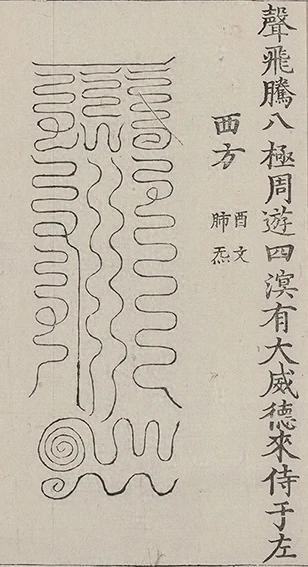 聲飛騰八極周遊四溟有大威德來侍于左
西方
酉文
肺炁